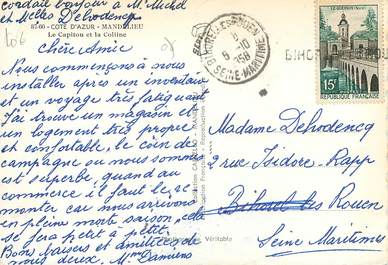 cordial bonjour à M. Michel
et Mlles Dehodencq
8760 - COTE D'AZUR - MANDELIEU
Le Capitou et la Colline
Chère Amie
Nous commençons à nous
installer après un inventaire
et un voyage très fatiguant
J'ai trouvé un magasin et
un logement très propre
et confortable, le coin de
campagne ou nous sommes
est superbe, quand au
commerce il faut le
monter car nous arrivons
en pleine morte saison, cela
se fera petit à petit.
Bons baisers et amitiées de
nous deux. Mme Damiens
Véritable
SEINE-MARITIME
LE QUESNOY (Nord)
15F
REPUBLIQUE FRANÇAISE
Madame Dehodencq
2 rue Isidore-Rapp
Bihorel les Rouen
Seine Maritime